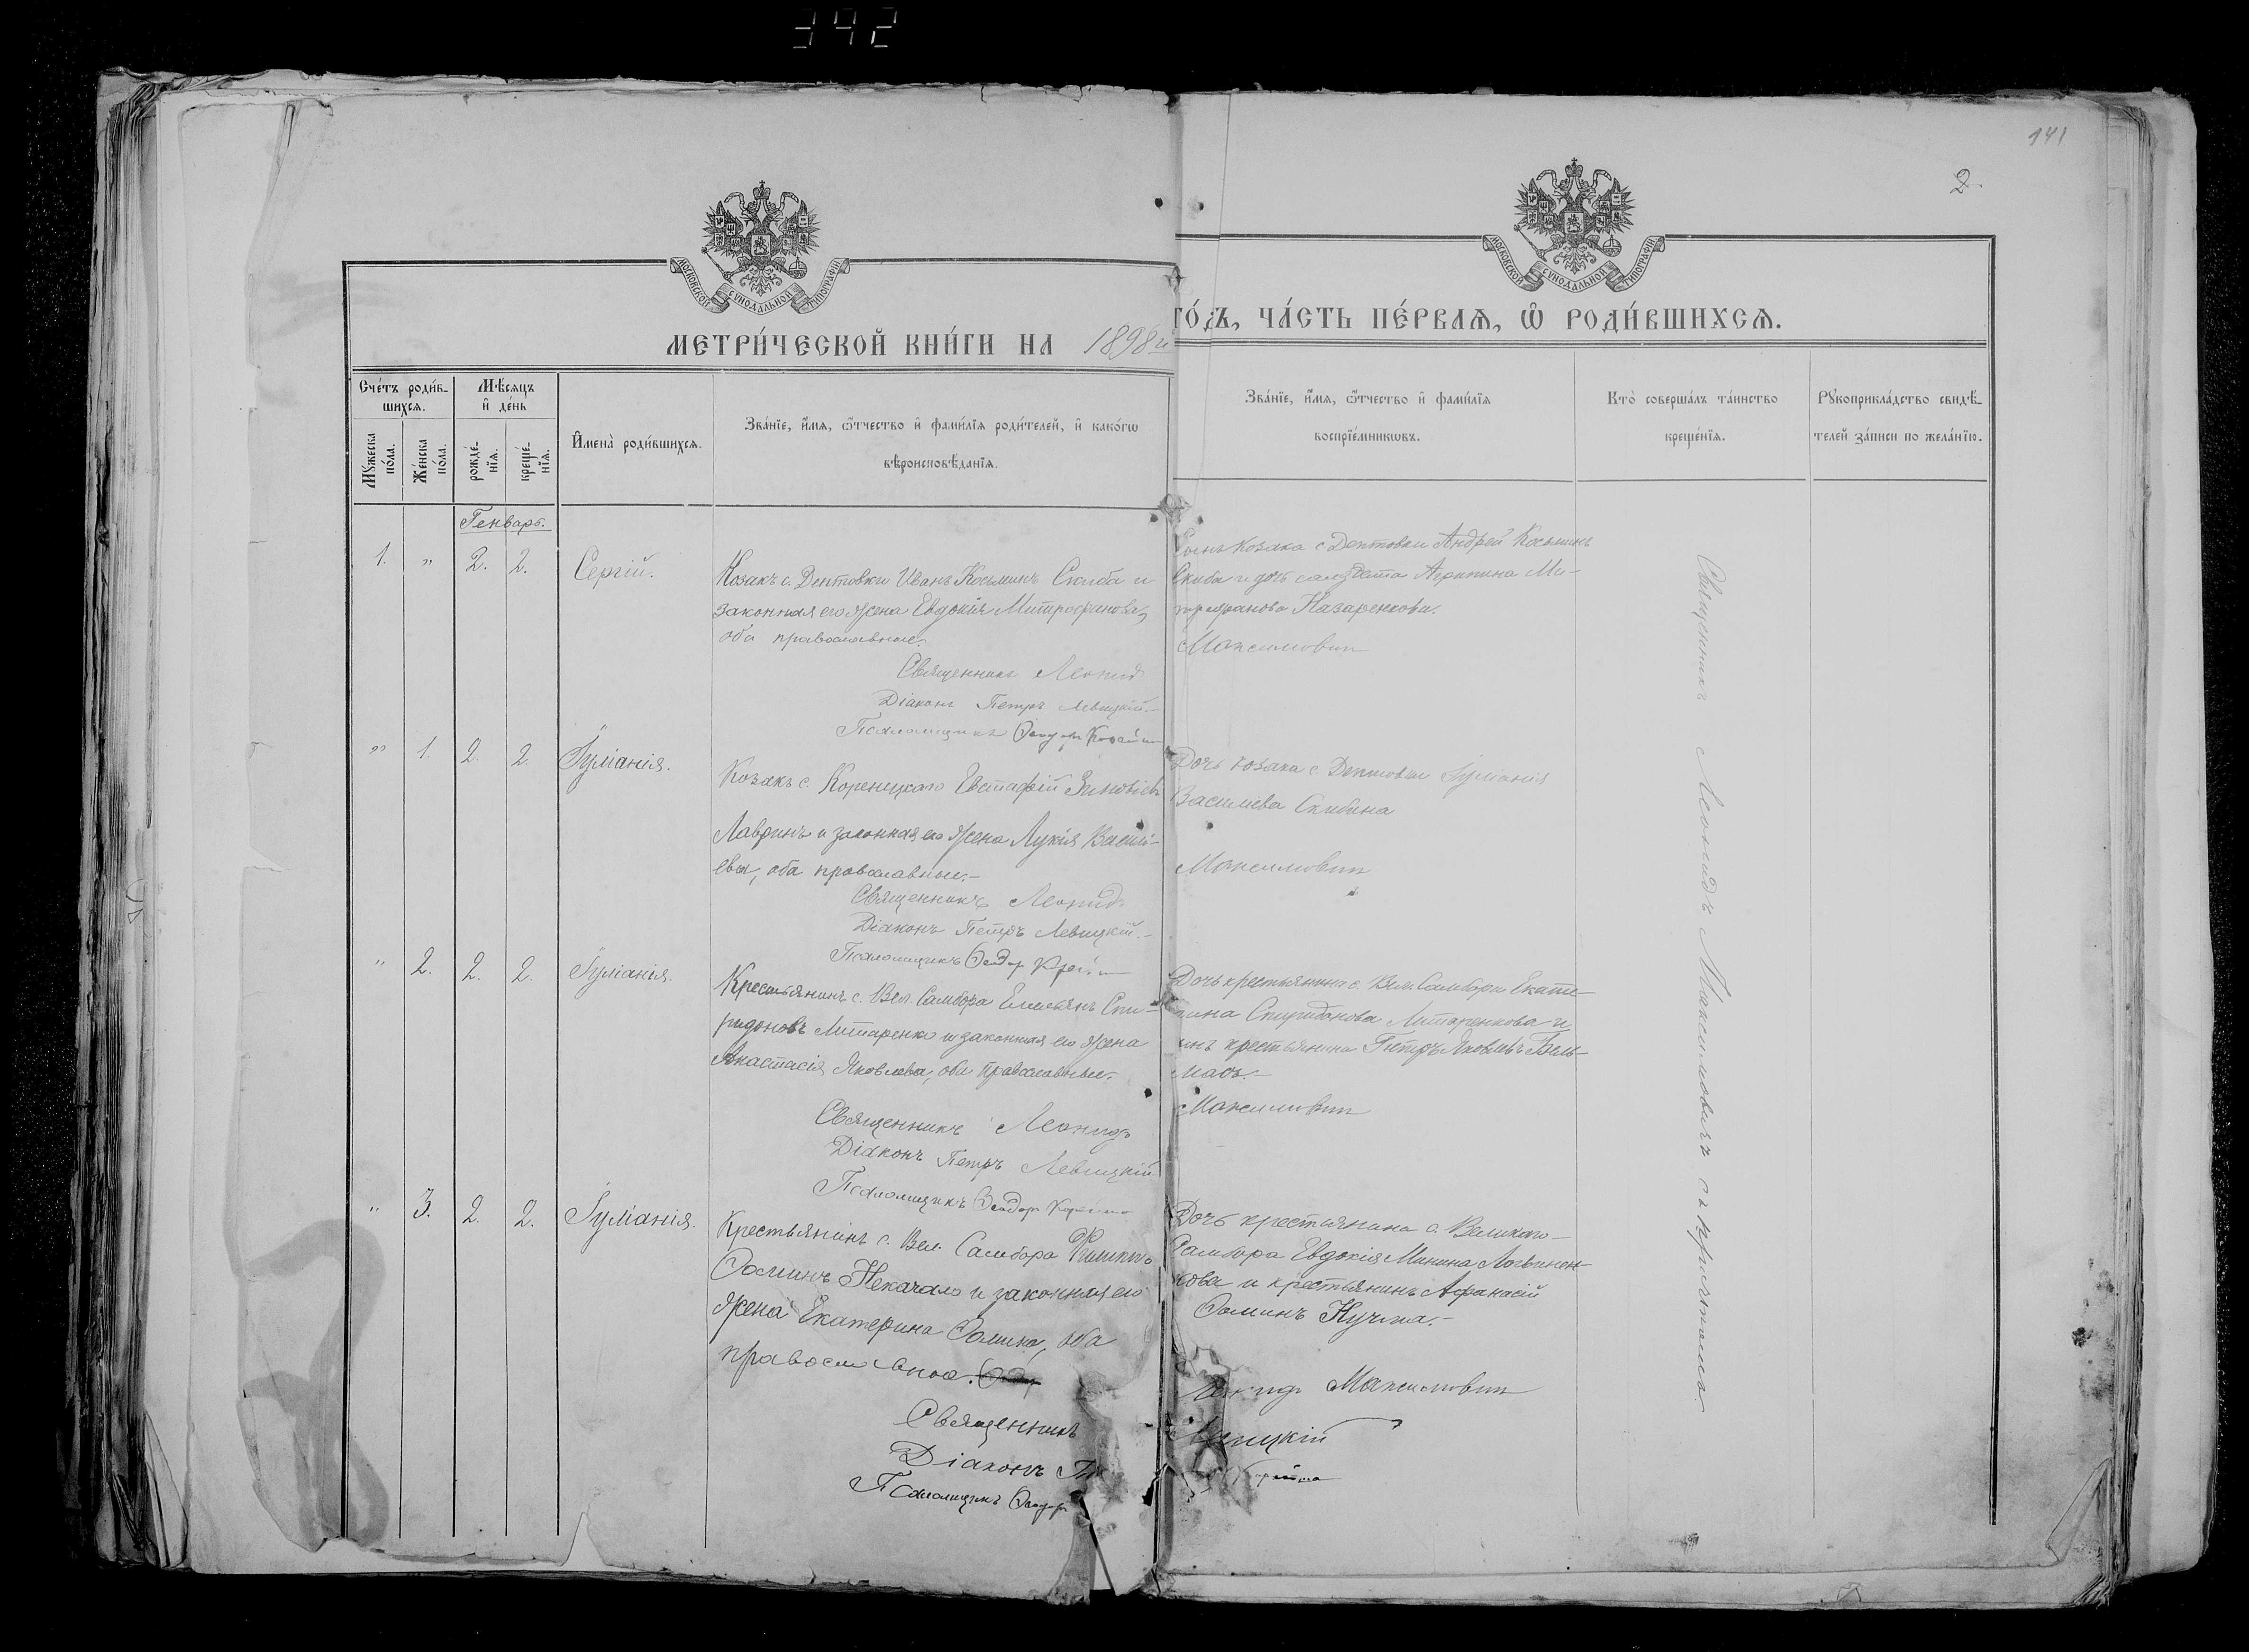 342
141
2.
МОСКОВСКОЙ СѴНОДАЛЬНОЙ ТИПОГРАФІИ
МОСКОВСКОЙ СѴНОДАЛЬНОЙ ТИПОГРАФІИ
МЕТРИ́ЧЕСКОЙ КНИ́ГИ НА 1898 й
ГО́ДЪ, ЧА́СТЬ ПЕ́РВАЯ, Ѡ РОДИ́ВШИХСЯ.
Сче́тъ роди́в-
шихся.
Мѣ́сяцъ
и де́нь
Мꙋ́жеска по́ла.
Же́нска по́ла.
рожде́-
нїя.
креще́-
нїя.
Имена̀ роди́вшихся.
Зва́нїе, и́мя, ѻ́тчество и фами́лїя роди́телей, и како́гѡ
вѣроисповѣ́данїя.
Зва́нїе, и́мя, ѻ́тчество и фами́лїя
воспрїе́мникѡвъ.
Кто̀ соверша́лъ та́инство
креще́нїя.
Рꙋкоприкла́дство свидѣ́-
телей за́писи по жела́нїю.
Генварь.
1. " 2. 2. Сергій.
Козакъ с. Дептовки Иванъ Косминъ Скиба и
законная его жена Евдокія Митрофанова,
оба православные.
Священникъ Леонид
Діаконъ Петръ Левицкій.
Псаломщикъ Ѳеодоръ
Сынъ козака с Дептовки Андрей Косминъ
Скиба и дочь солдата Агрипина Ми-
трофанова Назаренкова.
Максимович
" 1. 2. 2. Іуліанія.
Козакъ с. Кореницкаго Евстафій Зиновіевъ
Лавринъ и законная его жена Лукія Василі-
ева, оба православные.
Священникъ Леонидъ
Діаконъ Петръ Левицкій.
Псаломщикъ Ѳеодоръ
Дочь козака с. Дептовки Іуліанія
Василіева Скибина
Максимович
" 2. 2. 2. Іуліанія.
Крестьянинъ с. Вел. Самбора Емельянъ Спи-
ридоновъ Литаренко и законная его жена
Анастасія Яковлева, оба православные.
Священникъ Леонидъ
Діаконъ Петръ Левицкій
Псаломщикъ Ѳеодоръ
Дочь крестьянина с. Вел. Самбора Екате-
рина Спиридонова Литаренкова и
крестьянина Петръ Яковлевъ Бель-
масъ.
Максимович
" 3. 2. 2. Іуліанія.
Крестьянинъ с. Вел. Самбора
Ѳоминъ Некачало и законная его
жена Екатерина Ѳомина, оба
православные.
Священникъ
Діаконъ
Псаломщикъ Ѳеодоръ
Дочь крестьянина с. Великого
Самбора Евдокія Минина Логвинен-
кова и крестьянинъ Афанасій
Ѳоминъ Кучма.
Леонидъ Максимович
Левицкій
Священникъ Леонидъ Максимовичъ съ причтомъ.